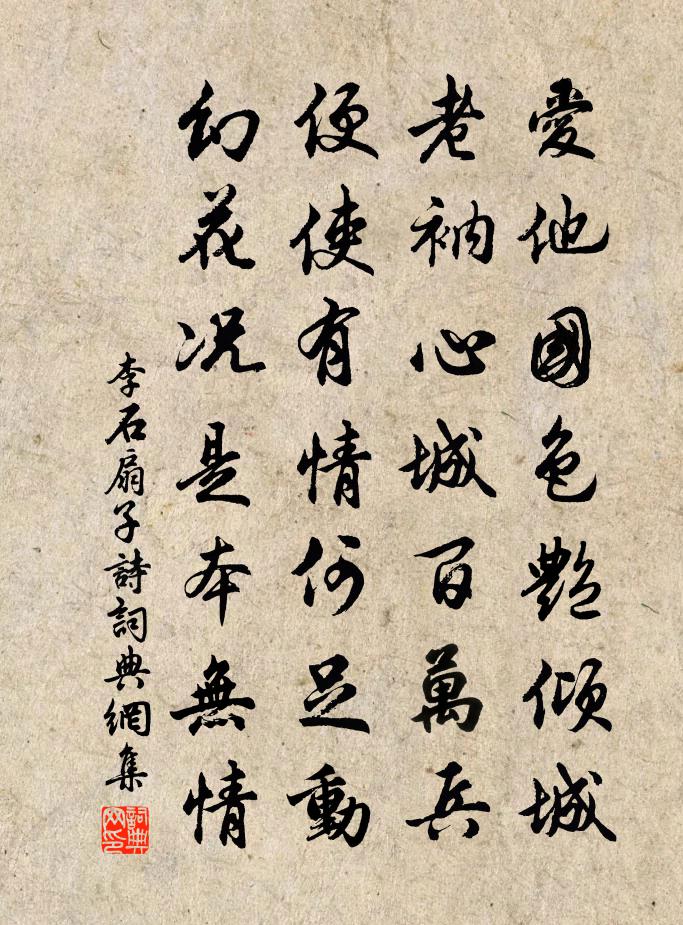 愛他國色艷傾城
老衲心城百萬兵
便使有情何足動
幻花况是本無情
李石扇子詩詞典網集
詞典网印